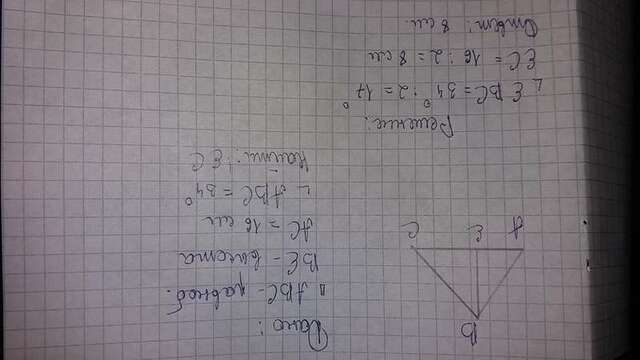 Дано:
Δ ABC - равноб.
BE - высота
AC = 16 см
∟ ABC = 34°
Найти: EC
Решение:
∟ EBC = 34° : 2 = 17°
EC = 16 : 2 = 8 см
Ответ: 8 см.
B
A
E
C